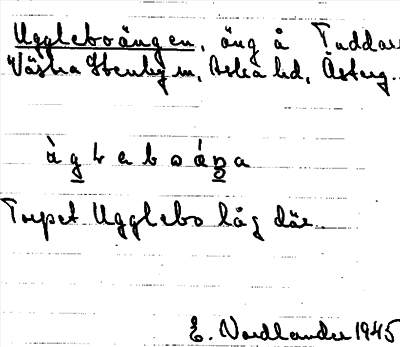 Uggleboängen, äng å Tuddar
Västra Stenby sn, Aska hd, Österg.
àgleboáŋa
Torpet Ugglebo låg där.
E. Nordlander 1945